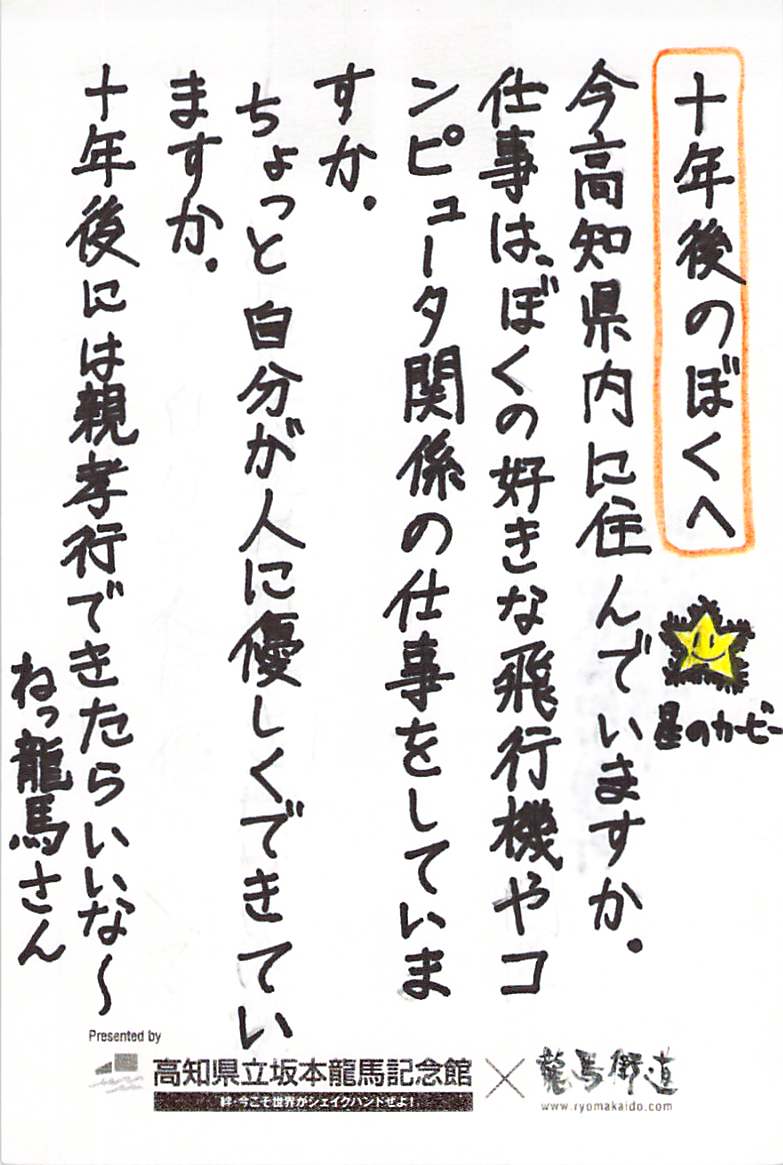 十年後のぼくへ
今高知県内に住んでいますか。
仕事は、ぼくの好きな飛行機やコ
ンピュータ関係の仕事をしていま
すか。
ちょっと自分が人に優しくできてい
ますか。
十年後には親孝行できたらいいな〜
ねっ龍馬さん
星のカービー
Presented by
高知県立坂本龍馬記念館×龍馬街道
絆・今こそ世界がシェイクハンドぜよ!
www.ryomakaido.com